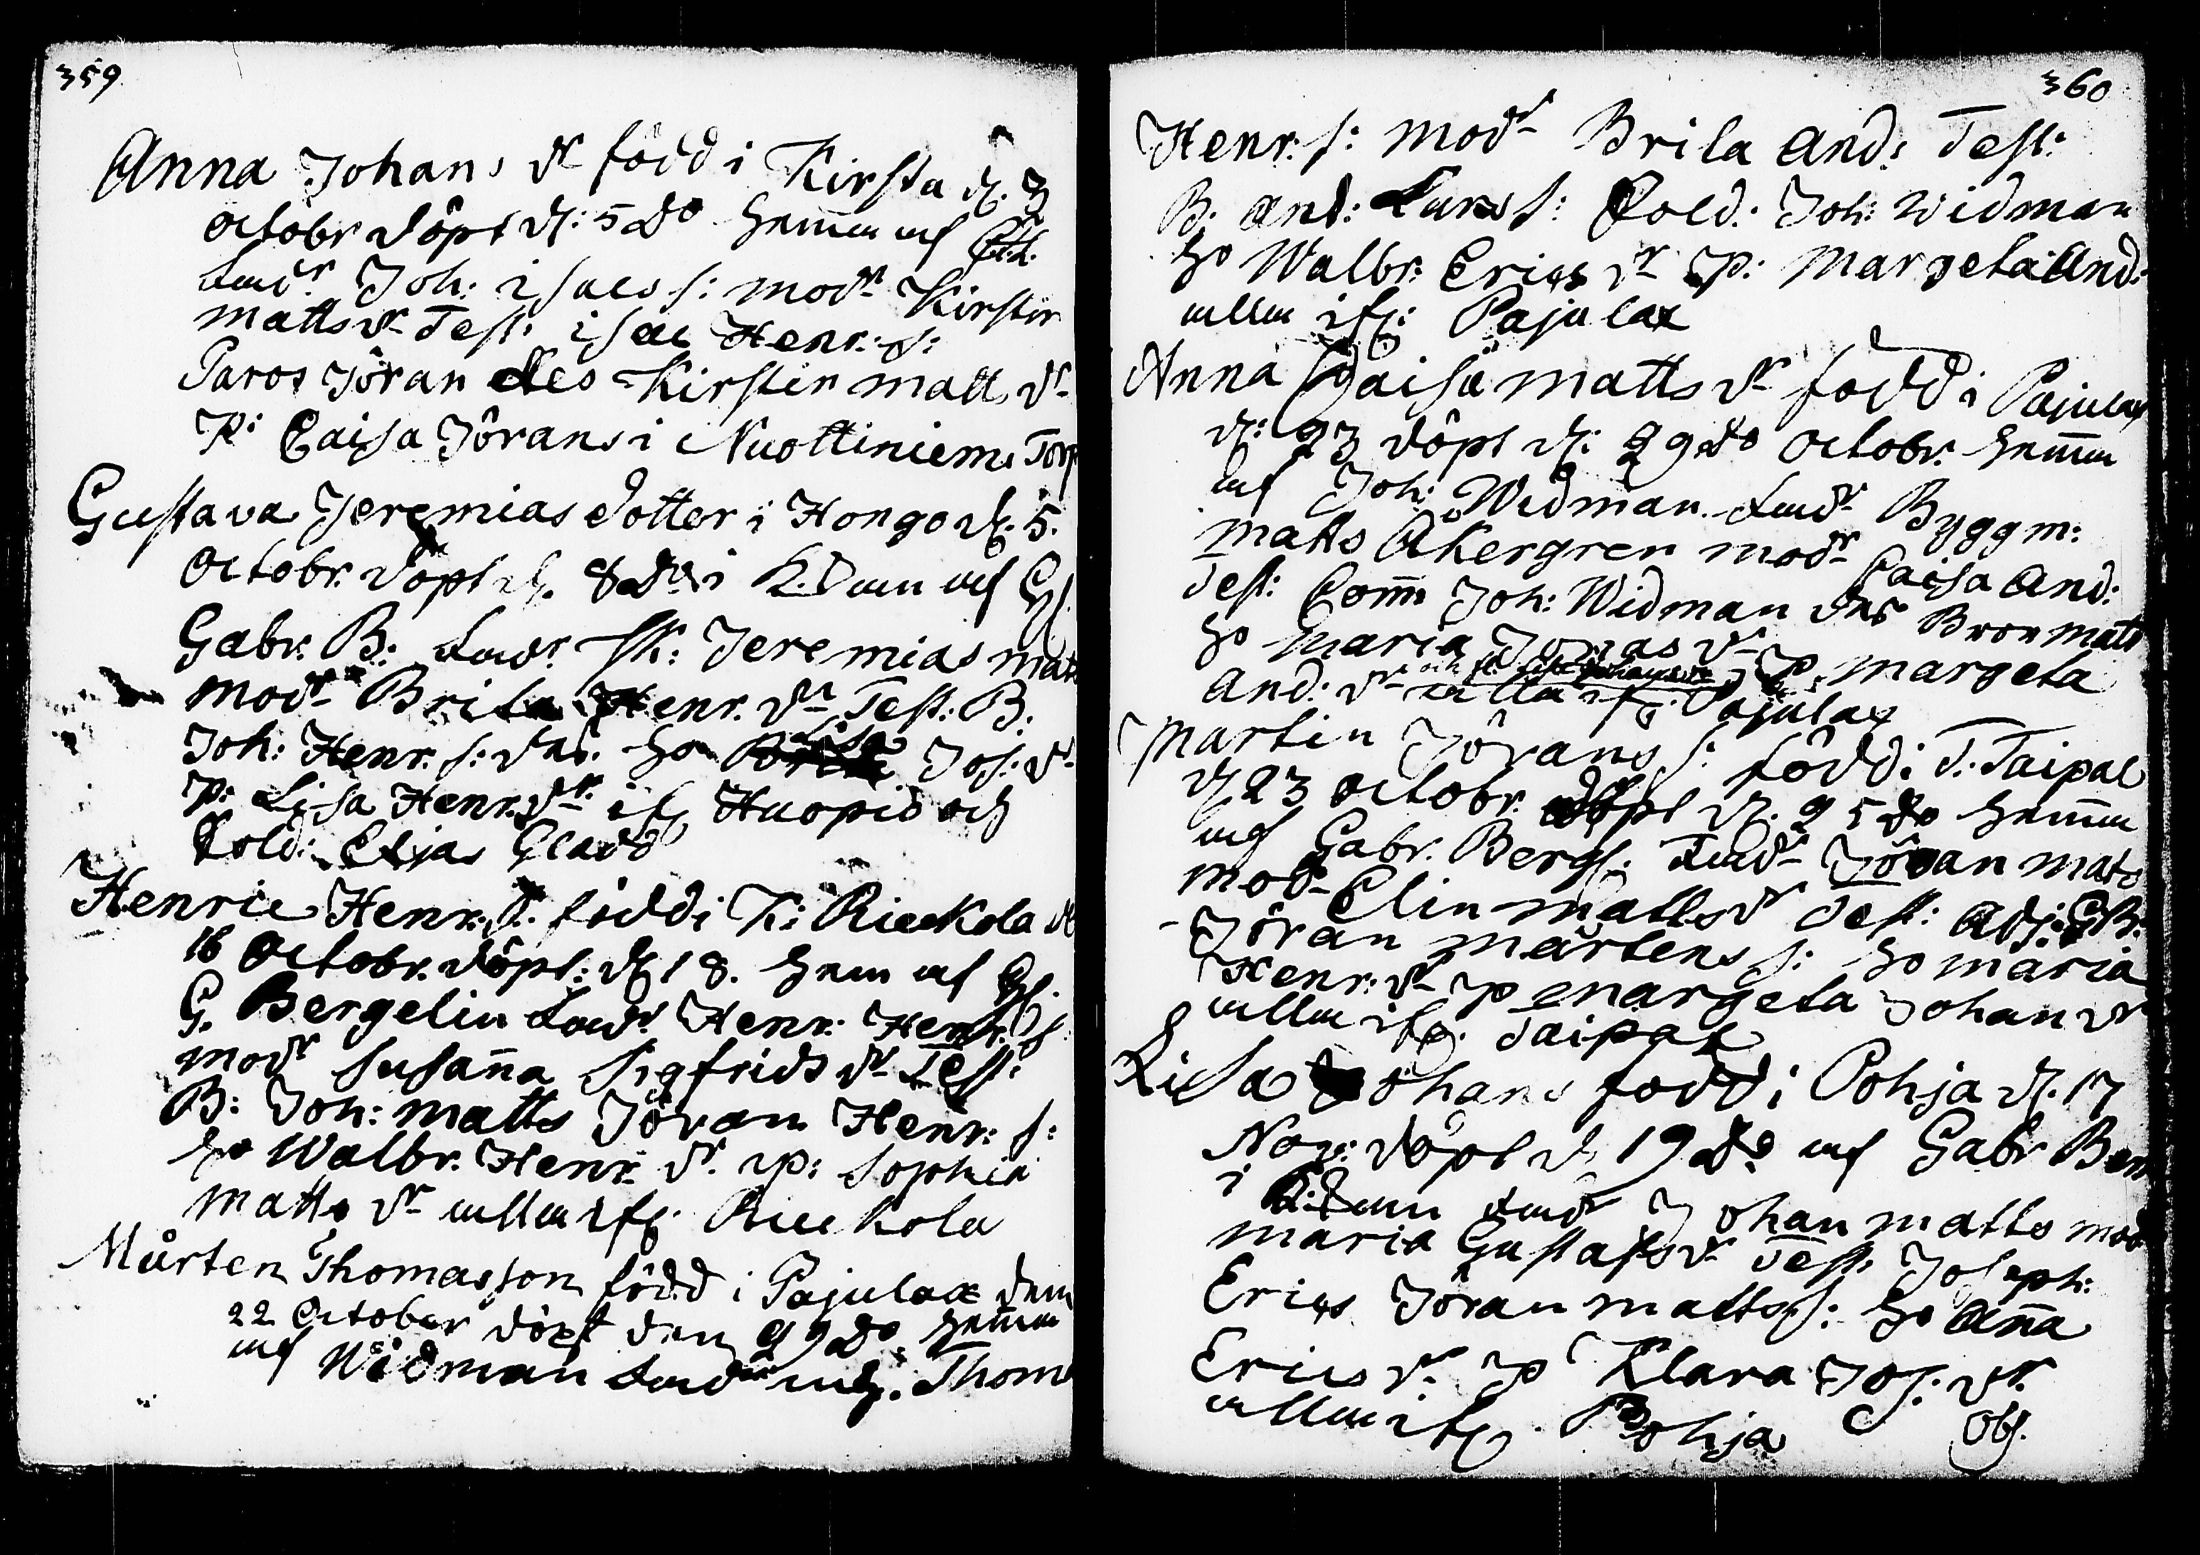 359
Anna Johans dr född i Kirsta d. 3
Octobr döpt d: 5 do hemma af
fadr Joh: isacs s: modr Kirstin
matts dr Test: isac Henr: s:
Paros Jöran des Kirstin matts dr
P: Caisa Jörans i Nuottiniemi Torp
Gustava Jeremias dotter i Hongo d. 5.
Octobr. döpt d. 8 do i K. af
Gabr. B: fadr sk: Jeremias mats
modr Brita Henr. dr Test: B:
Joh: Henr. s: des. ho Lisa Jos. dr
P: Lisa Henr. dr if Huopio och
Sold: Elias Gladd
Henric Henr. s. född i K: Rieckola d
16 Octobr. döpt: d 18. hem af
G. Bergelin fadr Henr. Henr. s
modr Susanna Sigfrids dr Test:
B: Joh: matts Jöran Henr: s:
ho Walbr. Henr. dr. p: Sophia
Matts dr alla if. Rieckola
Mårten Thomasson född i Pajulax den
22 October döpt den 29 do hemma
af Widman fadr Thom
360
Henr: s: modr Brita And: Test:
B. And: Lars s: Sold: Joh: Widman
ho Walbr. Erics dr P: Margeta And:
alla if: Pajulax
Anna Caisa matts dr född i Pajulax
d: 23 döpt d: 29 do Octobr. hemma
af Joh: Widman fadr Byggm:
matts Åkergren modr Caisa And:
Test: Comm Joh: Widman des Bror matts
ho Maria Jonas dr P. margeta
And: dr alla if. Pajulax
Martin Jörans s: född i T. Taipal
d 23 Octobr. döpt d. 25 do hemma
af Gabr. Berg. fadr Jöran mats
modr Elin matts dr Test: Adj: G.B.
Jöran mårtens s: ho maria
Henr. dr p margeta Johan dr
alla if. Taipal
Lisa Johans född i Pohja d. 17
Nov: döpt d 19 do af Gabr Ber
i fadr Johan matts mod
maria Gustafs dr Test: Joseph:
Erics Jöran matts s: ho Anna
Erics dr p Klara Jos: dr.
alla if. Pohja
Obs.